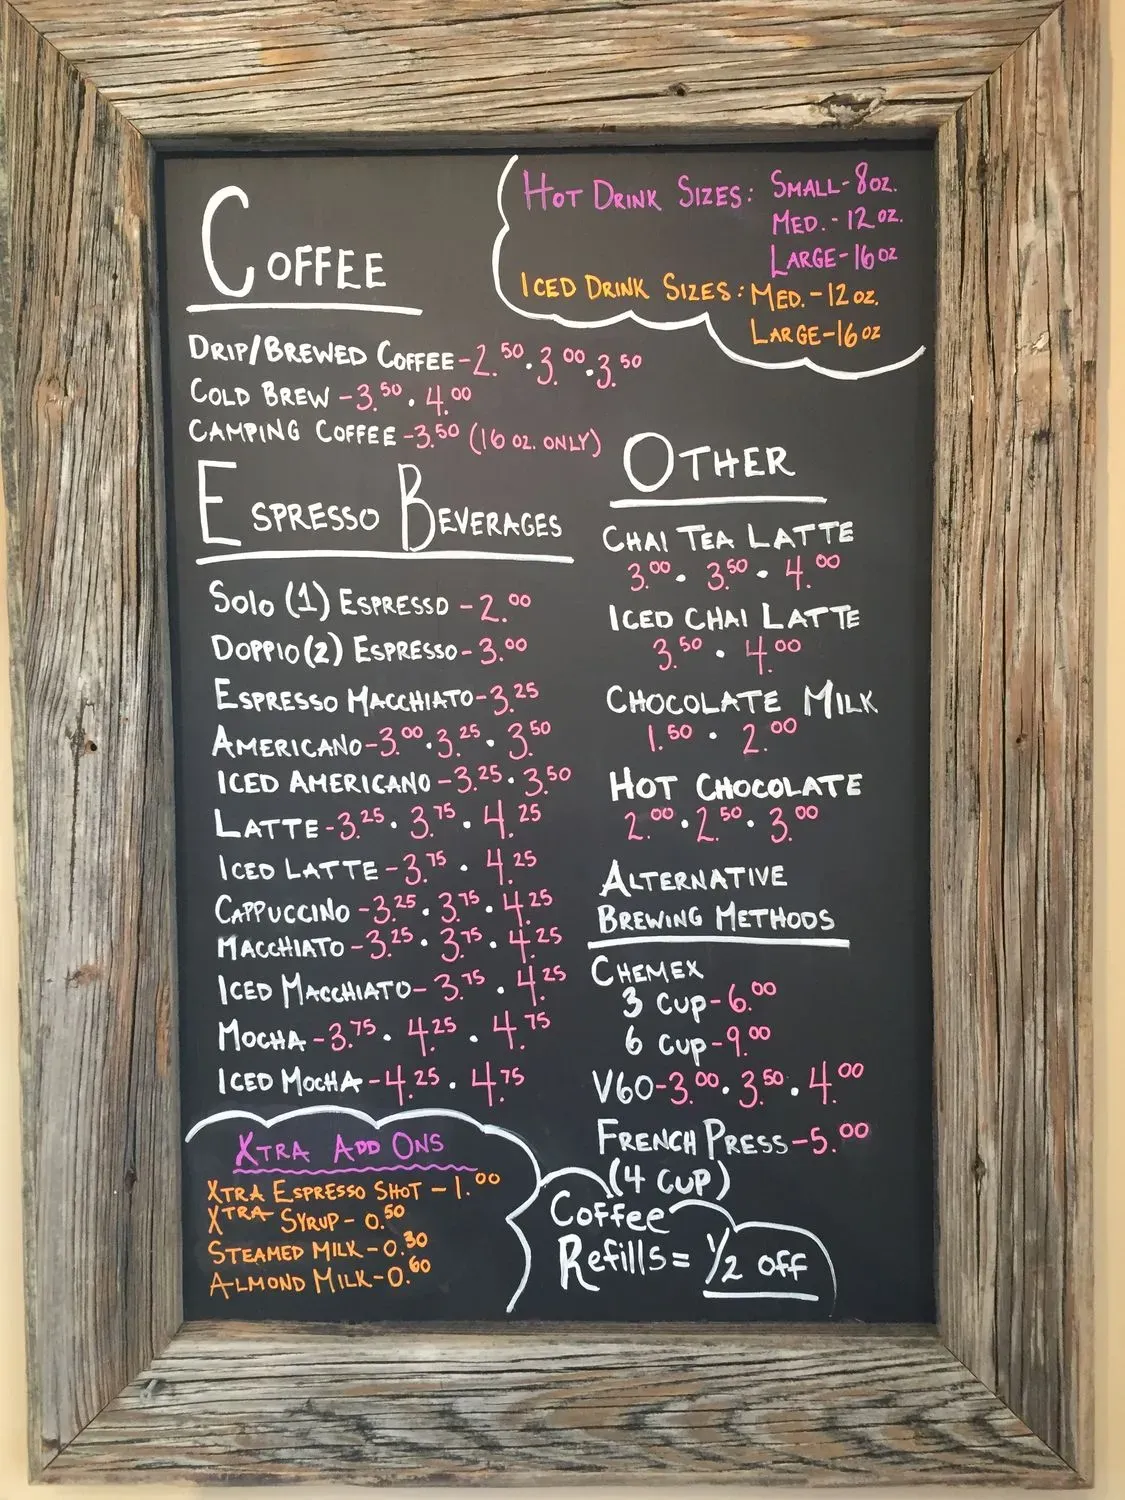 HOT DRINK SIZES: SMALL-8OZ.
MED.-12 OZ.
LARGE-16 OZ
ICED DRINK SIZES: MED.-12 OZ.
LARGE-16 OZ
COFFEE
DRIP/BREWED COFFEE-2.50·3.00·3.50
COLD BREW-3.50·4.00
CAMPING COFFEE-3.50 (16 OZ. ONLY)
ESPRESSO BEVERAGES
SOLO (1) ESPRESSO-2.00
DOPPIO(2) ESPRESSO-3.00
ESPRESSO MACCHIATO-3.25
AMERICANO-3.00·3.25·3.50
ICED AMERICANO-3.25·3.50
LATTE-3.25·3.75·4.25
ICED LATTE-3.75·4.25
CAPPUCCINO-3.25·3.75·4.25
MACCHIATO-3.25·3.75·4.25
ICED MACCHIATO-3.75·4.25
MOCHA-3.75·4.25·4.75
ICED MOCHA-4.25·4.75
XTRA ADD ONS
XTRA ESPRESSO SHOT-1.00
XTRA SYRUP-0.50
STEAMED MILK-0.30
ALMOND MILK-0.60
OTHER
CHAI TEA LATTE
3.00·3.50·4.00
ICED CHAI LATTE
3.50·4.00
CHOCOLATE MILK
1.50·2.00
HOT CHOCOLATE
2.00·2.50·3.00
ALTERNATIVE
BREWING METHODS
CHEMEX
3 CUP-6.00
6 CUP-9.00
V60-3.00·3.50·4.00
FRENCH PRESS-5.00
(4 CUP)
Coffee
Refills=1/2 off